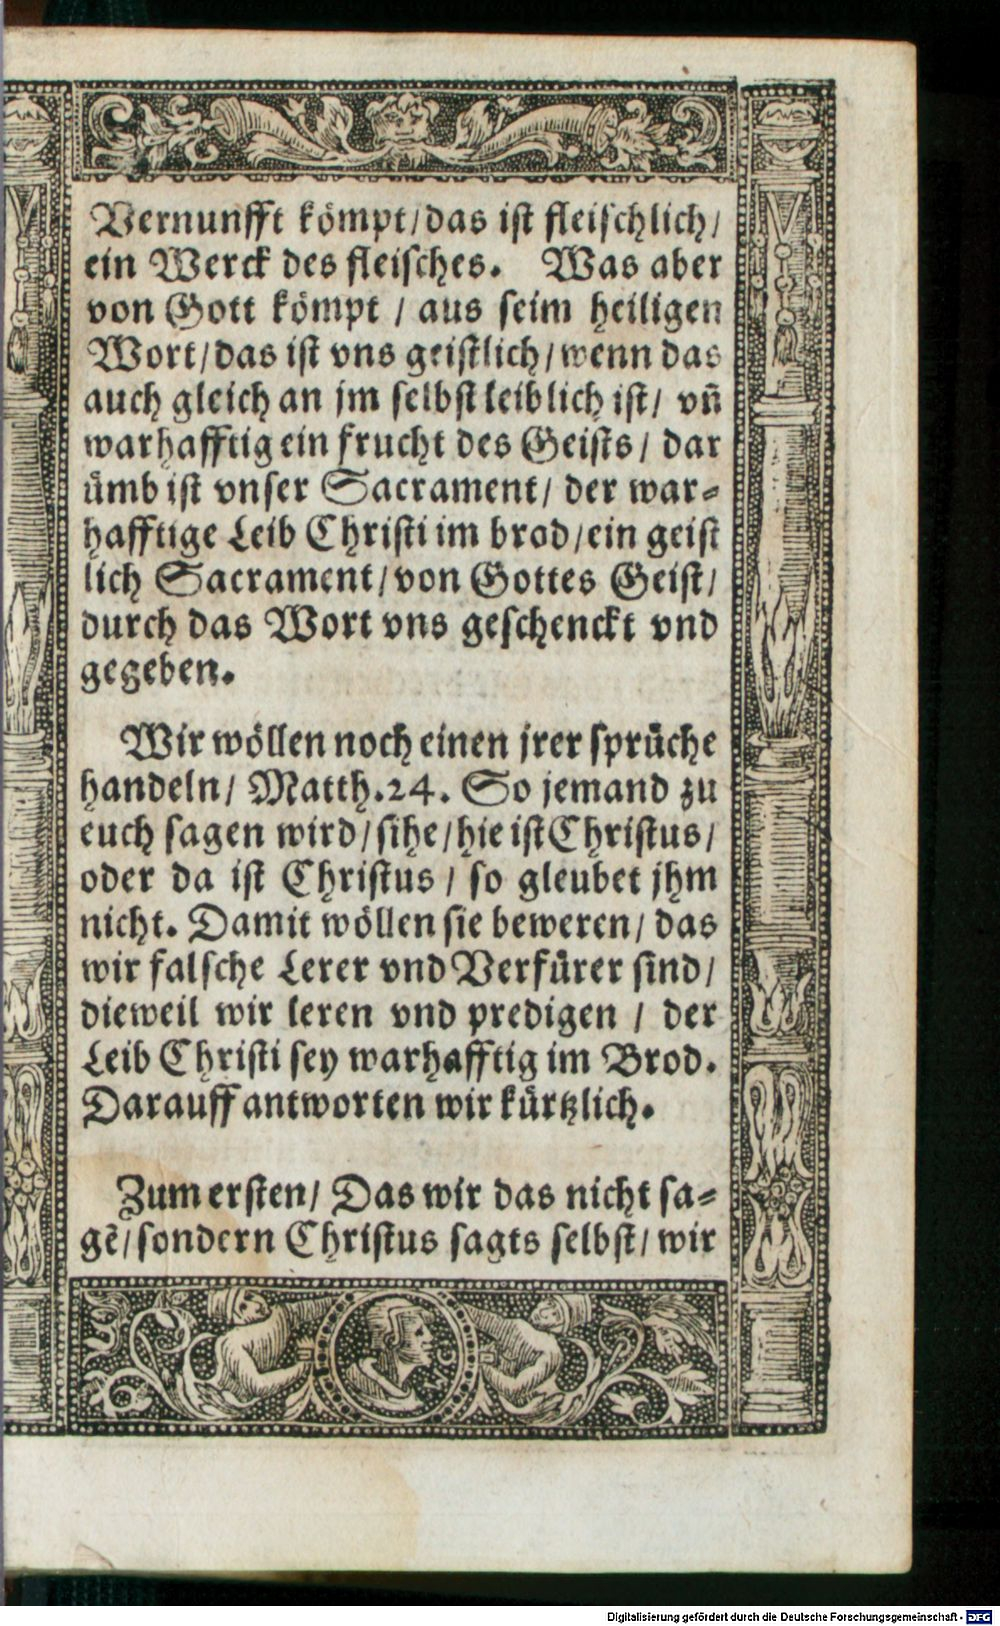 Vernunfft kömpt/das ist fleischlich/
ein Werck des fleisches. Was aber
von Gott kömpt / aus seim heiligen
Wort/das ist vns geistlich/wenn das
auch gleich an jm selbst leiblich ist/ vn̄
warhafftig ein frucht des Geists/ dar
ümb ist vnser Sacrament/ der war⸗
hafftige Leib Christi im brod/ein geist
lich Sacrament/von Gottes Geist/
durch das Wort vns geschenckt vnd
gegeben.
Wir wöllen noch einen jrer sprüche
handeln/ Matth.24. So jemand zu
euch sagen wird/sihe/hie ist Christus/
oder da ist Christus / so gleubet jhm
nicht. Damit wöllen sie beweren/ das
wir falsche Lerer vnd Verfürer sind/
dieweil wir leren vnd predigen / der
Leib Christi sey warhafftig im Brod.
Darauff antworten wir kürtzlich.
Zum ersten/ Das wir das nicht sa⸗
gē/sondern Christus sagts selbst/ wir
Digitalisierung gefördert durch die Deutsche Forschungsgemeinschaft - DFG